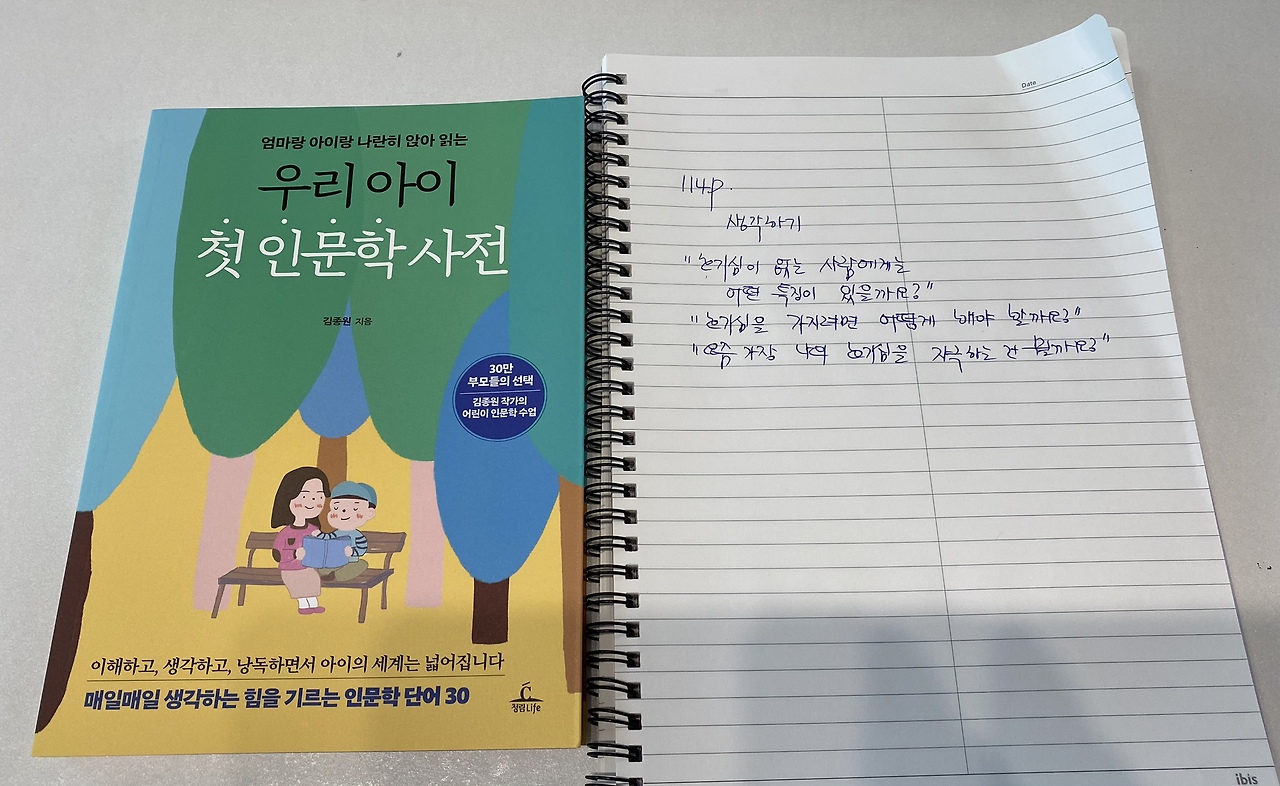 엄마랑 아이랑 나란히 앉아 읽는
우리 아이
첫 인문학 사전
김종원 지음
30만
부모들의 선택
김종원 작가의
어린이 인문학 수업
이해하고, 생각하고, 낭독하면서 아이의 세계는 넓어집니다
매일매일 생각하는 힘을 기르는 인문학 단어 30
청림Life
Date
114p.
생각하기
"호기심이 많는 사람에게는
어떤 특징이 있을까요?"
"호기심을 가지려면 어떻게 해야 할까요?"
"요즘 가장 나의 호기심을 자극하는 건 뭘까요?"
ibis